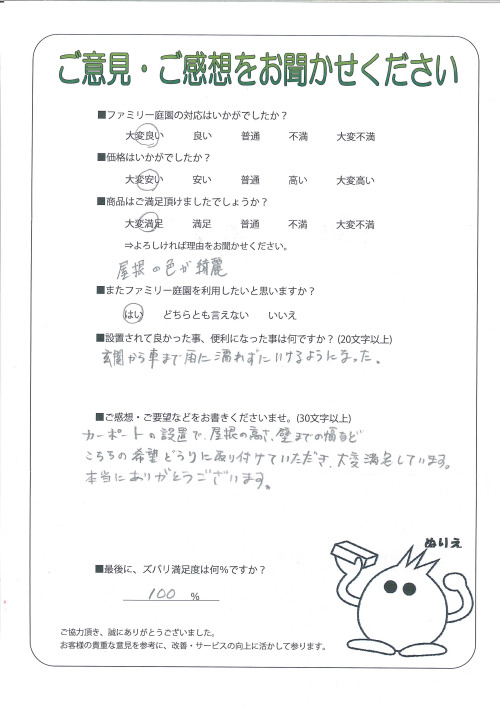 ご意見・ご感想をお聞かせください
■ファミリー庭園の対応はいかがでしたか？
大変良い 良い 普通 不満 大変不満
■価格はいかがでしたか？
大変安い 安い 普通 高い 大変高い
■商品はご満足頂けましたでしょうか？
大変満足 満足 普通 不満 大変不満
⇒よろしければ理由をお聞かせください。
屋根の色が綺麗
■またファミリー庭園を利用したいと思いますか？
はい どちらとも言えない いいえ
■設置されて良かった事、便利になった事は何ですか？(20文字以上)
玄関から車まで雨に濡れずにいけるようになった。
■ご感想・ご要望などをお書きくださいませ。(30文字以上)
カーポートの設置で、屋根の高さ、壁までの幅など
こちらの希望どうりに取り付けていただき、大変満足しています。
本当にありがとうございます。
ぬりえ
■最後に、ズバリ満足度は何%ですか？
100 %
ご協力頂き、誠にありがとうございました。
お客様の貴重な意見を参考に、改善・サービスの向上に活かして参ります。